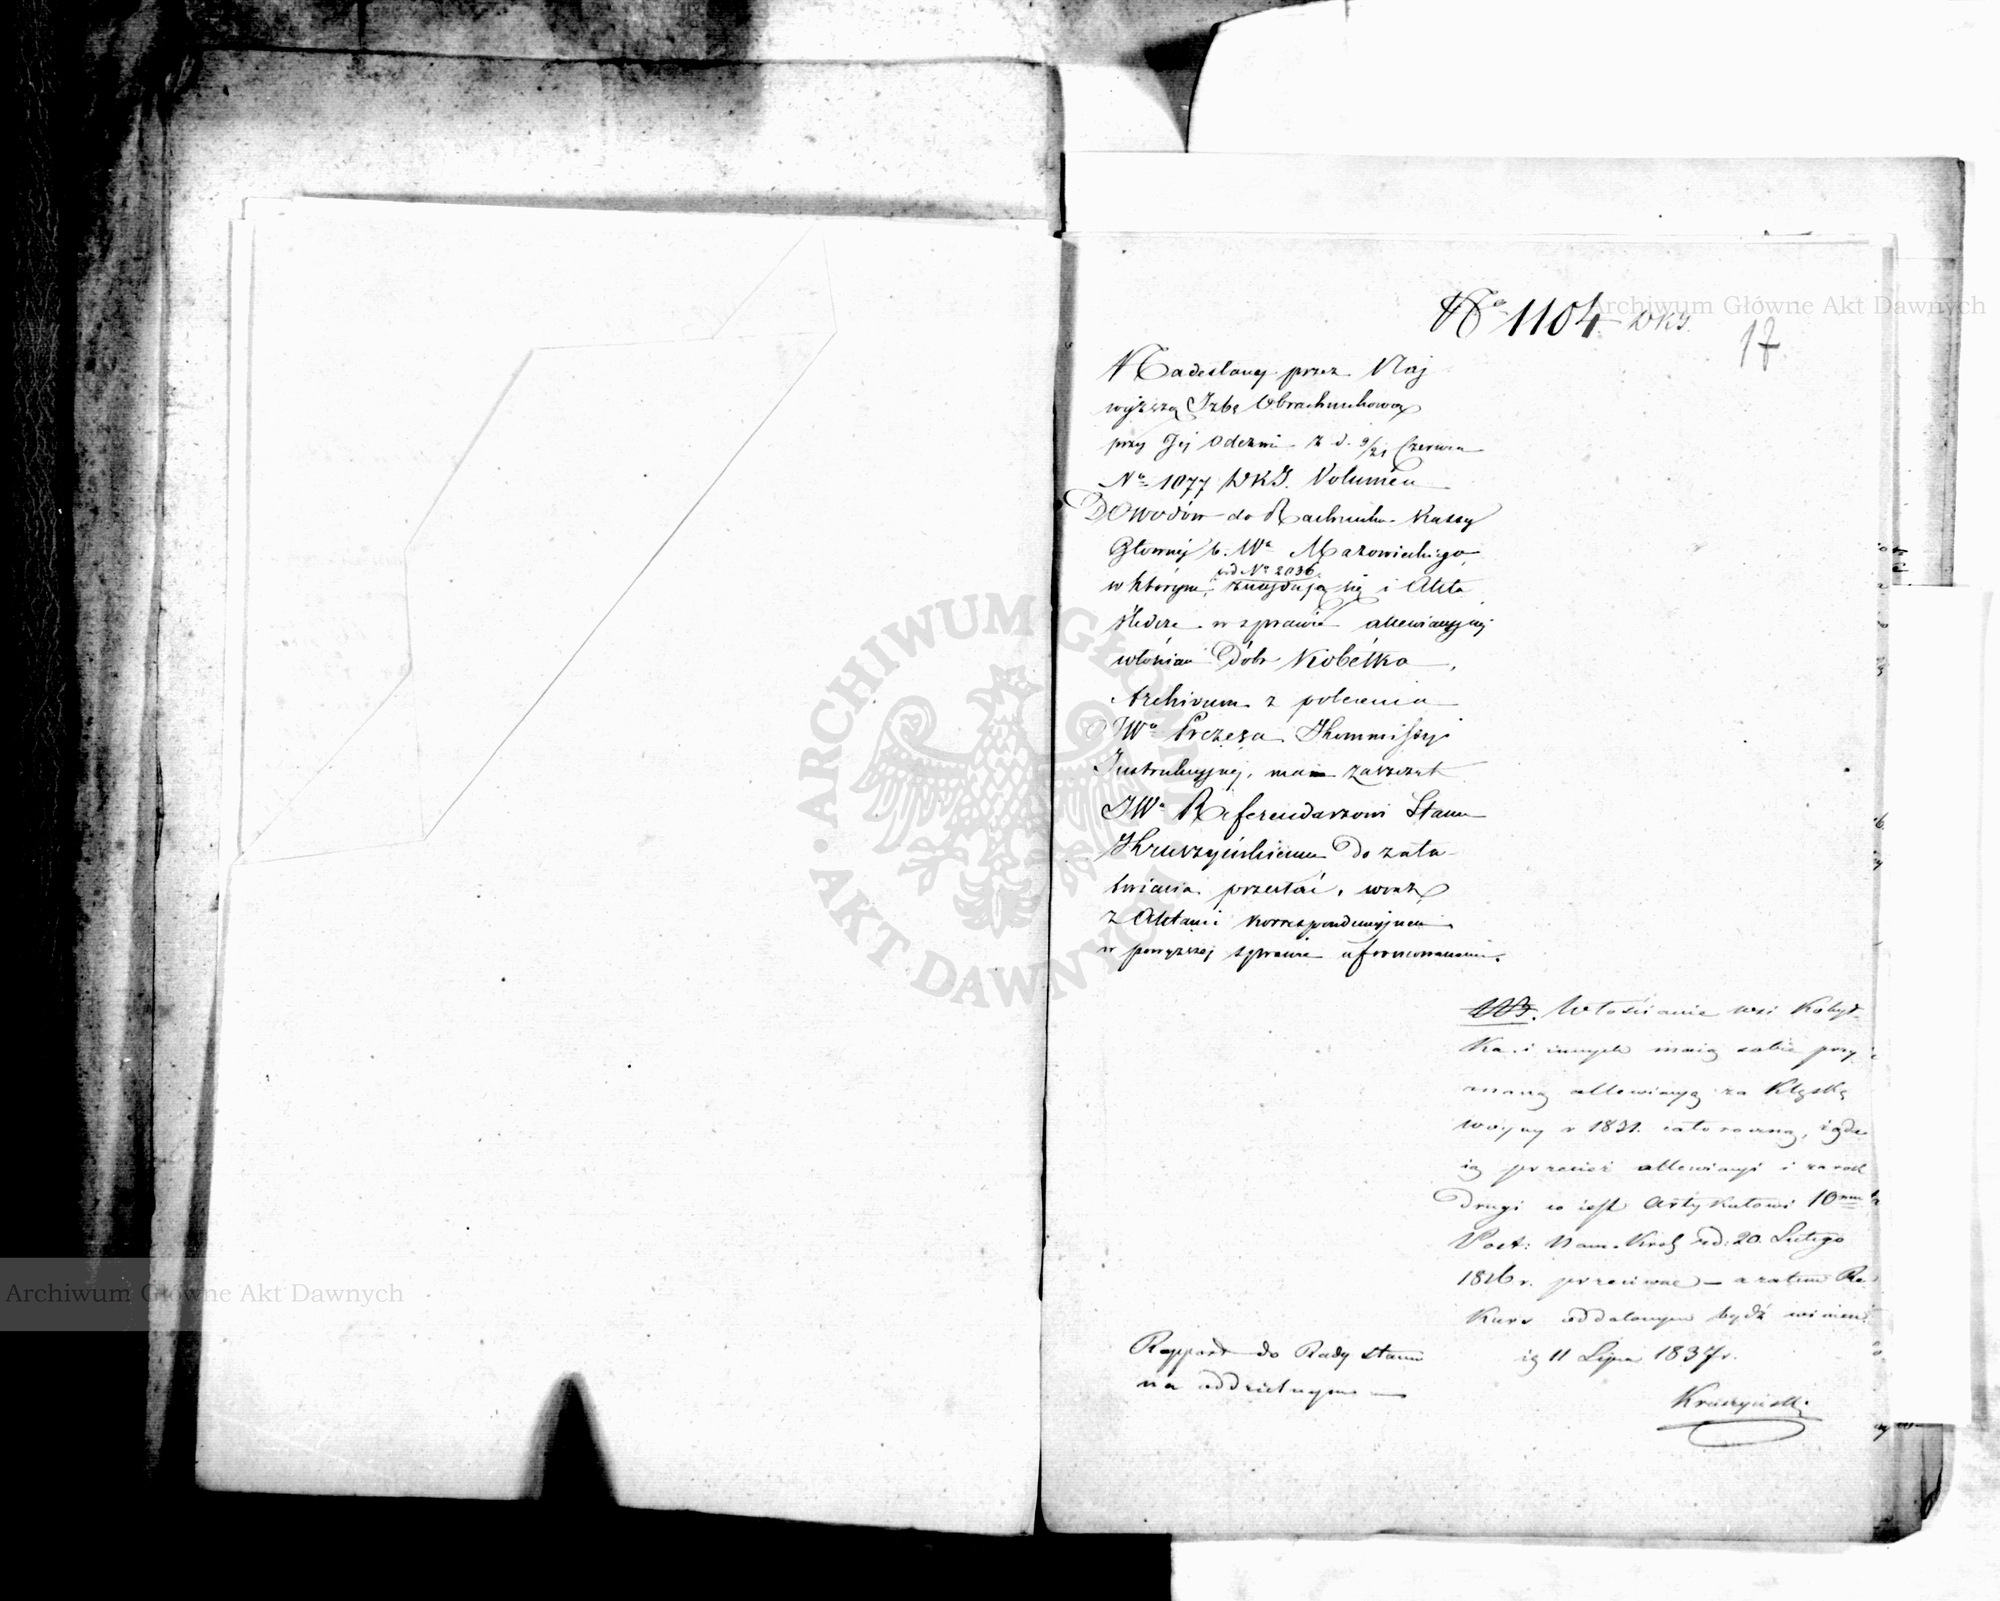 Nº 1104 DKJ.
17
Nadesłany przez Naj
wyższą Izbę Obrachunkową
przy Jej Odezwie z d. 9/21 Czerwca
Nº 1077 DKJ. Volumen
Dowodów do Rachunku Kassy
Głównej b. Wa Mazowieckiego,
od Nº 2036
w którym, znajdują się i Akta
śledcze w sprawie allewiacyjnej
włościan Dóbr Kobełka,
Archivum z polecenia
JWº Prezesa Kommissyi
Instrukcyjnej, ma zaszczyt
JWº Referendarzowi Stanu
Kruszyńskiemu do zała-
twienia przesłać, wraz
z Aktami korrespondencyjnemi
w powyższej sprawie uformowanemi.
Włościanie wsi Kobył-
ka i innych mają sobie przy
znaną allewiacyą za klęskę
wojny r 1831. całoroczną, żąda
ią przecież allewiacyi i za rok
drugi co iest Artykułowi 10mu
Post: Nam. Król z d: 20. Lutego
1816 r. przeciwne – a zatem Re
kurs oddalonym bydź winien
11 Lipca 1837 r.
Kruszyński
Rapport do Rady Stanu
na oddzielnym
Archiwum Główne Akt Dawnych
Archiwum Główne Akt Dawnych
ARCHIWUM GŁÓWNE AKT DAWNYCH